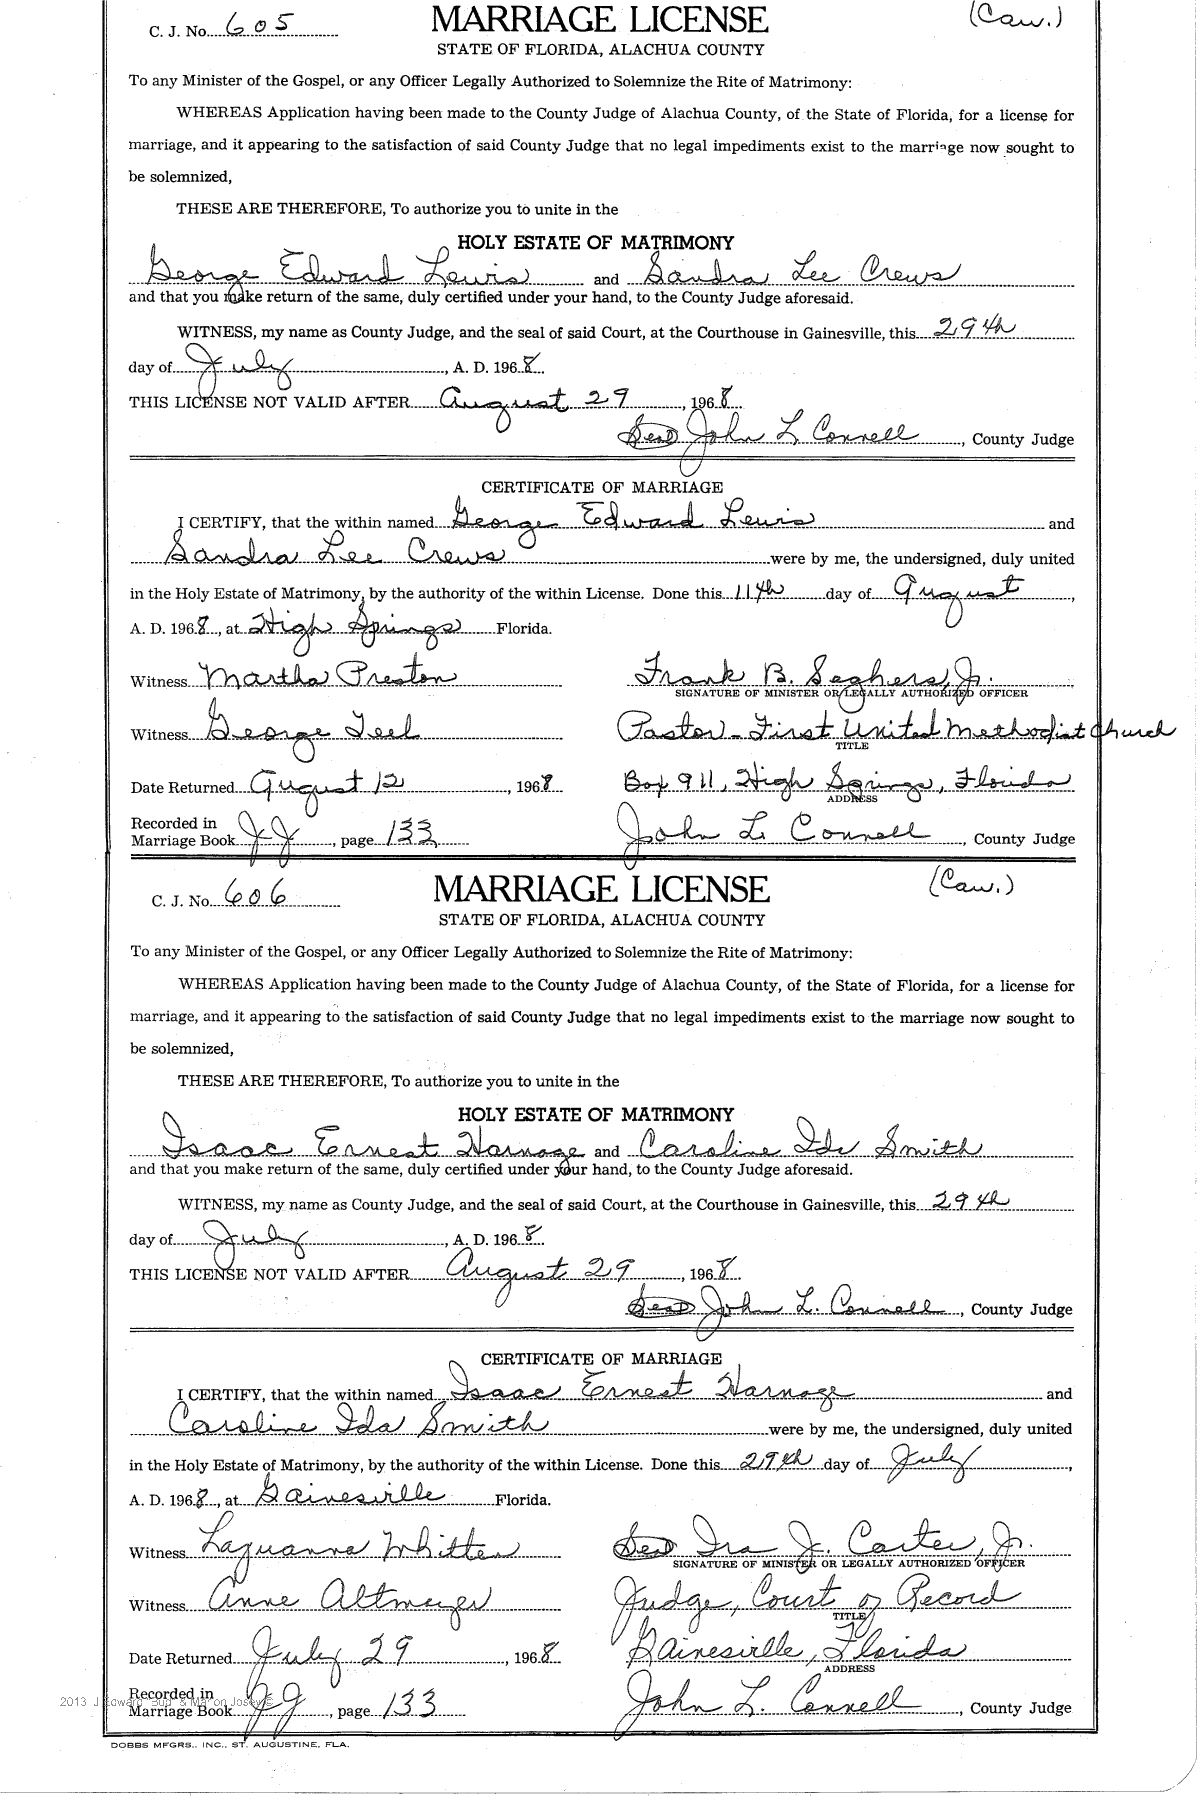 C. J. No. 605 MARRIAGE LICENSE (Caw.)
STATE OF FLORIDA, ALACHUA COUNTY
To any Minister of the Gospel, or any Officer Legally Authorized to Solemnize the Rite of Matrimony:
WHEREAS Application having been made to the County Judge of Alachua County, of the State of Florida, for a license for
marriage, and it appearing to the satisfaction of said County Judge that no legal impediments exist to the marriage now sought to
be solemnized,
THESE ARE THEREFORE, To authorize you to unite in the
HOLY ESTATE OF MATRIMONY
George Edward Lewis and Sandra Lee Crews
and that you make return of the same, duly certified under your hand, to the County Judge aforesaid.
WITNESS, my name as County Judge, and the seal of said Court, at the Courthouse in Gainesville, this 29th
day of July, A. D. 1968
THIS LICENSE NOT VALID AFTER August 29, 1968
Seal John L Connell, County Judge
CERTIFICATE OF MARRIAGE
I CERTIFY, that the within named George Edward Lewis and
Sandra Lee Crews were by me, the undersigned, duly united
in the Holy Estate of Matrimony, by the authority of the within License. Done this 11th day of August,
A. D. 1968, at High Springs Florida.
Witness Martha Preston Frank B. Seghers, Jr.
SIGNATURE OF MINISTER OR LEGALLY AUTHORIZED OFFICER
Witness George Teel Pastor - First United Methodist Church
TITLE
Date Returned August 12, 1968 Box 911, High Springs, Florida
ADDRESS
Recorded in
Marriage Book JJ, page 133 John L. Connell, County Judge
C. J. No. 606 MARRIAGE LICENSE (Caw.)
STATE OF FLORIDA, ALACHUA COUNTY
To any Minister of the Gospel, or any Officer Legally Authorized to Solemnize the Rite of Matrimony:
WHEREAS Application having been made to the County Judge of Alachua County, of the State of Florida, for a license for
marriage, and it appearing to the satisfaction of said County Judge that no legal impediments exist to the marriage now sought to
be solemnized,
THESE ARE THEREFORE, To authorize you to unite in the
HOLY ESTATE OF MATRIMONY
Isaac Ernest Harnage and Caroline Ida Smith
and that you make return of the same, duly certified under your hand, to the County Judge aforesaid.
WITNESS, my name as County Judge, and the seal of said Court, at the Courthouse in Gainesville, this 29th
day of July, A. D. 1968
THIS LICENSE NOT VALID AFTER August 29, 1968
Seal John L. Connell, County Judge
CERTIFICATE OF MARRIAGE
I CERTIFY, that the within named Isaac Ernest Harnage and
Caroline Ida Smith were by me, the undersigned, duly united
in the Holy Estate of Matrimony, by the authority of the within License. Done this 29th day of July,
A. D. 1968, at Gainesville Florida.
Witness Laquanna Whitten Seal Ira J. Carter, Jr.
SIGNATURE OF MINISTER OR LEGALLY AUTHORIZED OFFICER
Witness Anne Altmeyer Judge, Court of Record
TITLE
Date Returned July 29, 1968 Gainesville, Florida
ADDRESS
Recorded in
2013 J Edward "Bud" & Marion Josey ©
Marriage Book JJ, page 133 John L. Connell, County Judge
DOBBS MFGRS., INC., ST. AUGUSTINE, FLA.